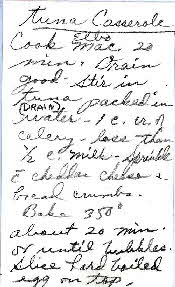 Tuna Casserole
Cook Elbo Mac. 20
min. Drain
good - Stir in
tuna packed in
(DRAIN) water - 1 c. cr. of
celery - less than
1/2 c. milk - sprinkle
c̄ cheddar cheese &
bread crumbs.
Bake 350°
about 20 min.
or until bubbles.
Slice hard boiled
egg on top.